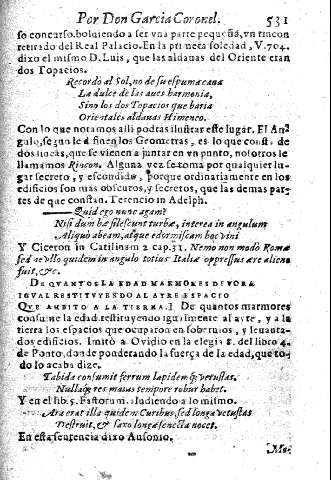 Por Don Garcia Coronel. 531
so concurso. boluiendo a ser vna parte pequeña, vn rincon
retirado del Real Palacio. En la primera soledad, V. 704.
dixo el mismo D. Luis, que las aldauas del Oriente eran
dos Topacios.
Recordo al Sol, no de su espuma cana
La dulce de las aues harmonia,
Sino los dos Topacios que batia
Orientales aldauas Himeneo.
Con lo que notamos alli podras ilustrar este lugar. El An-
gulo, segun le difinen los Geometras, es lo que consta de
dos lineas, que se vienen a juntar en vn punto, nosotros le
llamamos Rincon. Alguna vez se toma por qualquier lu-
gar secreto, y escondido, porque ordinariamente en los
edificios son mas obscuros, y secretos, que las demas par-
tes de que constan. Terencio in Adelph.
Quid ego nunc agam?
Nisi dum hæ silescunt turbæ, interea in angulum
Aliquò abeam, atque edormiscam hoc vini
Y Ciceron in Catilinam 2 cap. 31. Nemo non modò Romæ
sed ne vllo quidem in angulo totius Italiæ oppressus ære alieno
fuit, &c.
DE QUANTOS LA EDAD MARMORES DEVORA
IGVAL RESTITVYENDO AL AYRE ESPACIO
QUE AMBITO A LA TIERRA.] De quantos marmores
consume la edad restituyendo igualmente al ayre, y a la
tierra los espacios que ocuparon en soberuios, y leuanta-
dos edificios. Imitò a Ovidio en la elegia 8. del libro 4.
de Ponto, donde ponderando la fuerça de la edad, que to-
do lo acaba dize.
Tabida consumit ferrum lapidemq; vetustas.
Nullaq; res maius tempore robur habet.
Y en el lib. 5. Fastorum. aludiendo a lo mismo.
Ara erat illa quidem Curibus, sed longa vetustas
Destruit, & saxo longa senecta nocet.
En esta sentencia dixo Ausonio.
Mo-